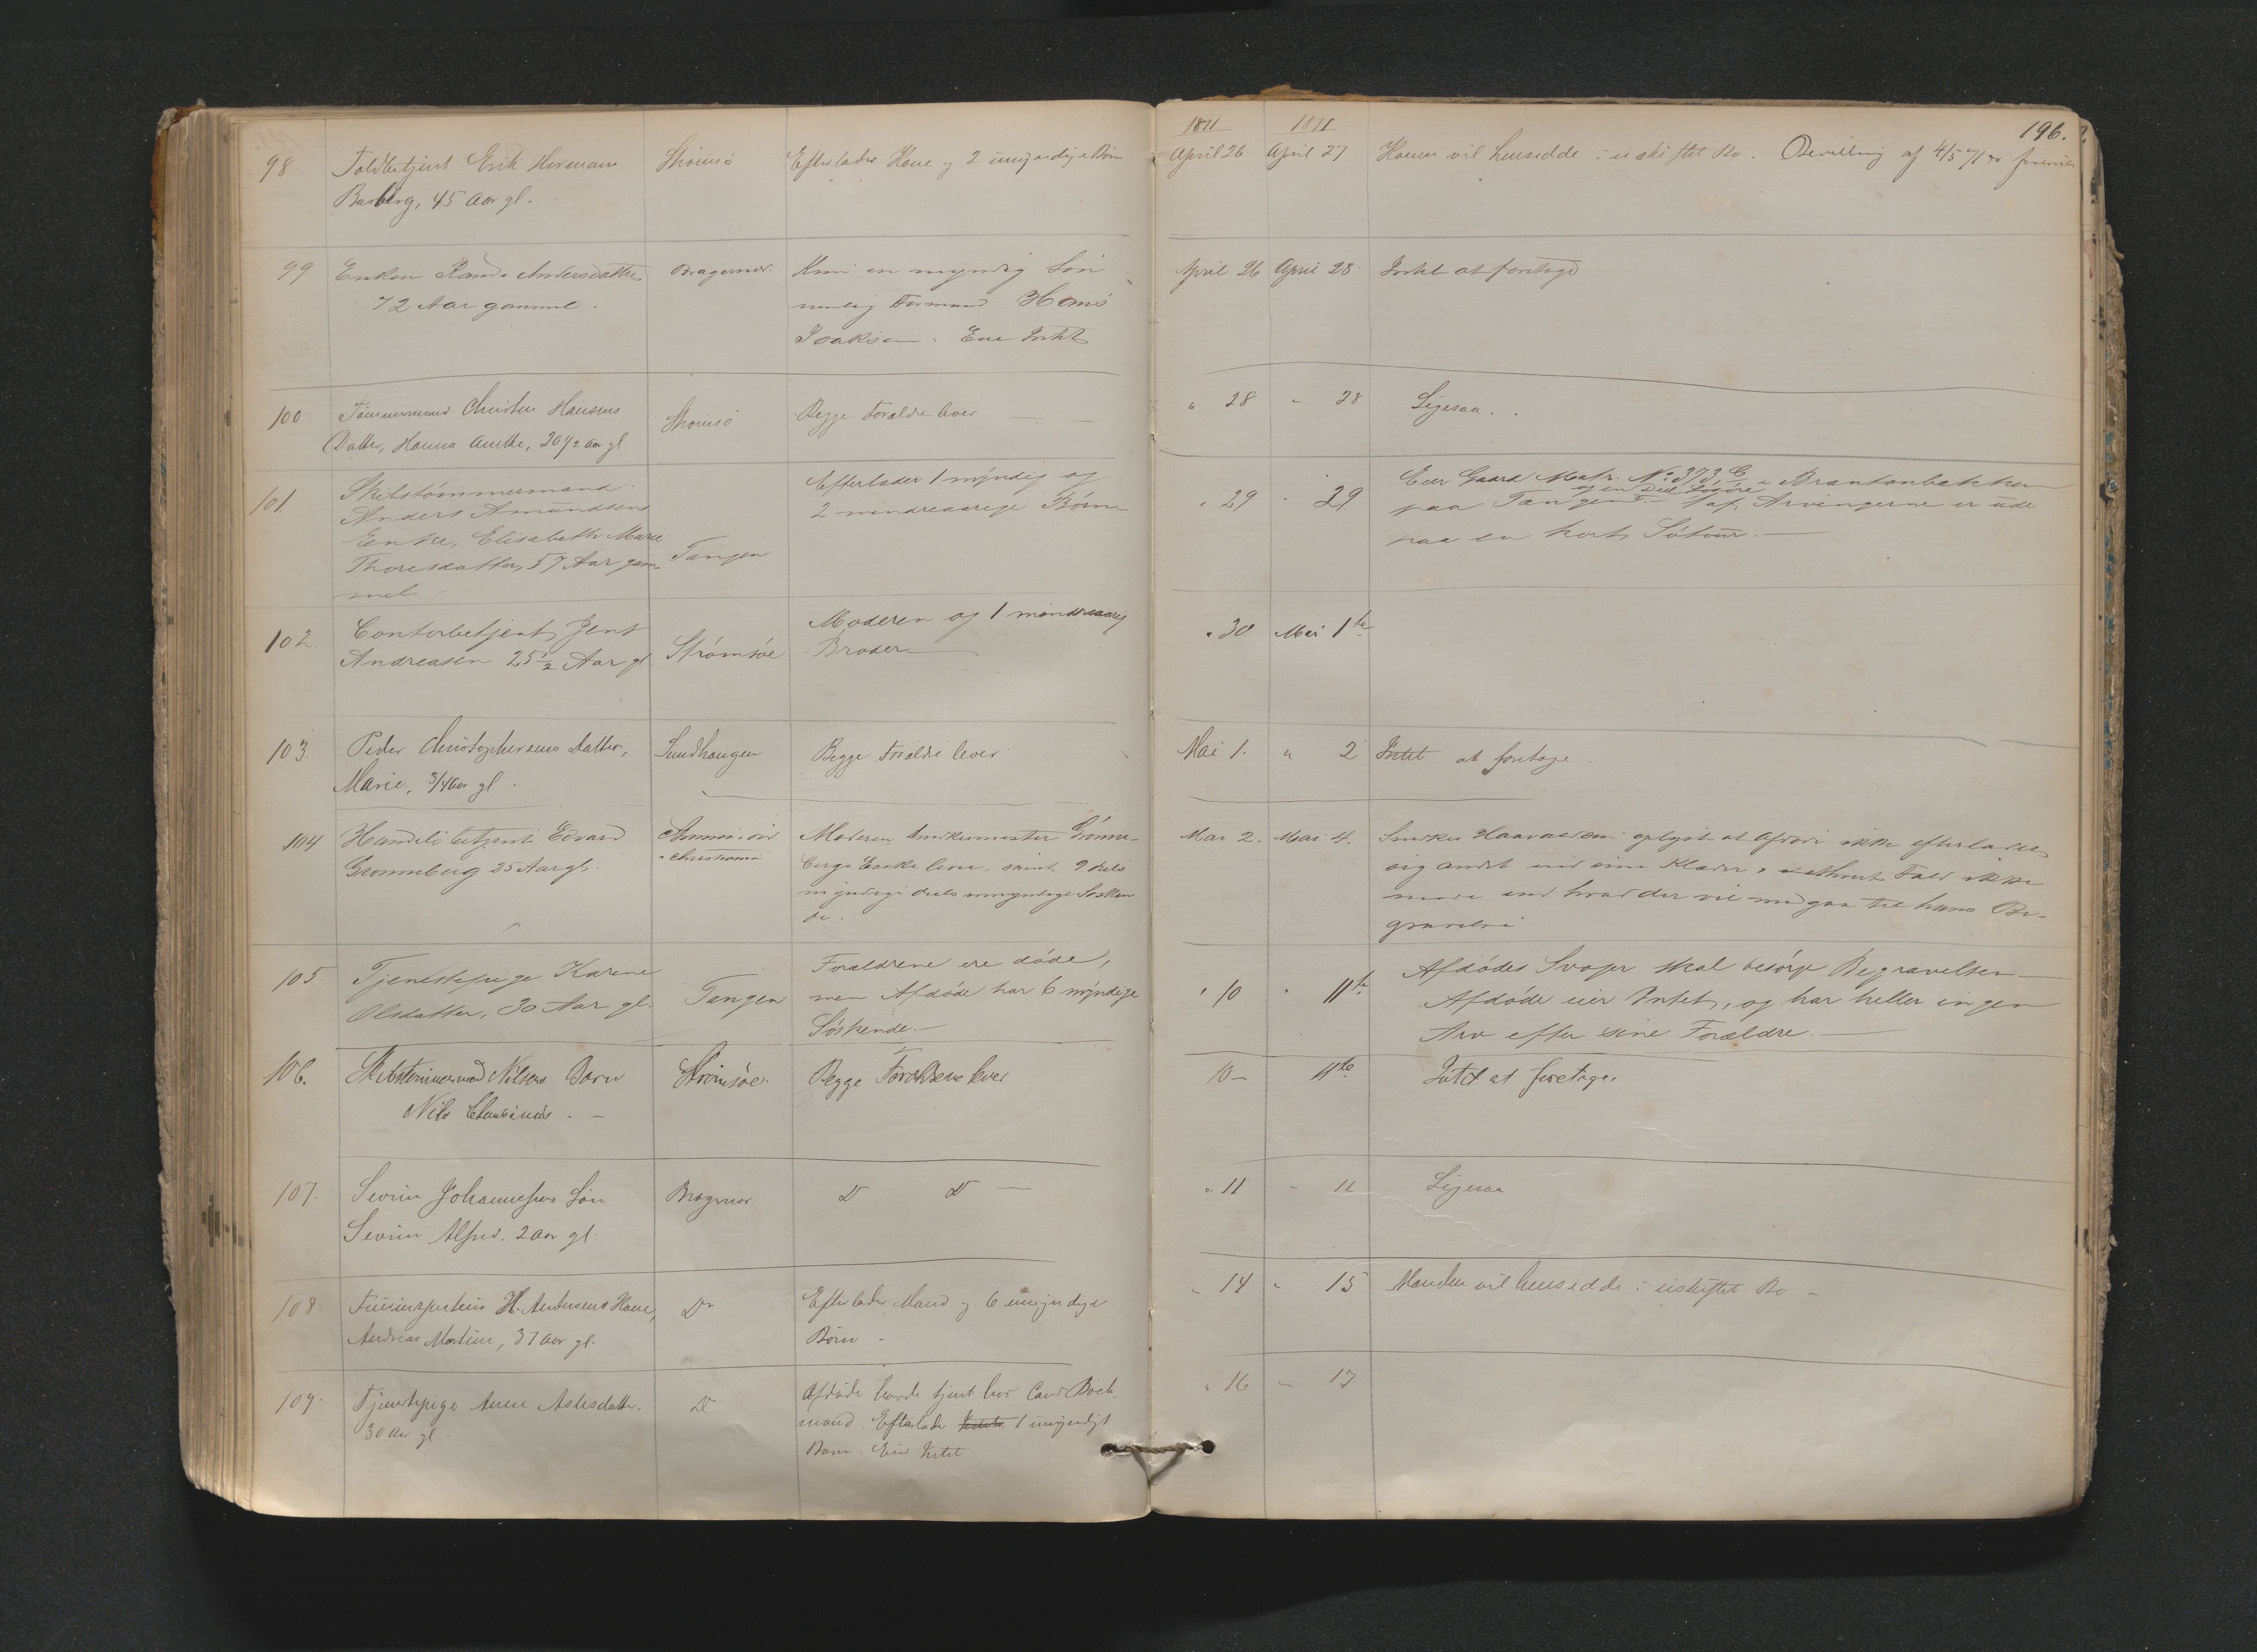 196.
1871 1871
98. Toldbetjent Erik Herman Strømsø Efterlader Kone og 2 umyndige Børn April 26 April 27 Konen vil hensidde i uskiftet Bo. Bevilling af 4/5 71
Basberg, 45 Aar gl.
99 Enken Randi Andersdatter Bragernæs. Kun en myndig Søn April 26 April 28 Intet at foretage
72 Aar gammel. nemlig Formand Hans
Isaksen. Eier Intet
100. Tømmermand Christen Hansens Strømsø Begge Forældre lever „ 28 „ 28 Ligesaa.
Datter, Hanna 20 1/2 Aar gl
101 Skibstømmermand Efterlader 1 myndig og „ 29 „ 29 Eier Gaard Matr. No 373, C i Brantenbakken
Anders Amundsens 2 mindreaarige Børn og en Deel Løsøre
Enke, Elisabeth Marie Tangen paa Tangen. 1 af Arvingerne er ude
Thoresdatter, 57 Aar gam- paa en kort Søtour.
mel.
102. Contorbetjent Jens Strømsøe Moderen og 1 mindreaarig „ 30 Mai 1te
Andreasen 25 1/2 Aar gl Broder
103. Peder Christophersens Datter, Sundhaugen Begge Forældre lever Mai 1. „ 2 Intet at foretage.
Marie, 3/4 Aar gl.
104 Handelsbetjent Edvard Moderen Snedkermester Grønne- Mai 2. Mai 4. Snedker oplyst at Afdøde ikke efterlader
Grønneberg 25 Aar gl. Christiania bergs Enke lever, samt 9 dels sig andet end sine Klæder, i ethvert Fald ikke
myndige dels umyndige Søsken mere end hvad der vil medgaa til hans Be-
de. gravelse
105. Tjenestepige Karine Tangen Forældrene ere døde, „ 10 „ 11te Afdødes Svoger skal besørge Begravelsen.
Olsdatter, 30 Aar gl. men Afdøde har 6 myndige Afdøde eier Intet, og har heller ingen
Søskende. Arv efter sine Forældre.
106. Skibstømmermand Nilsens Barn Strømsøe. Begge Forældrene lever 10 11te Intet at foretage.
Nils
107. Severin Johannesens Søn Bragernæs Do Do „ 11 „ 11 Ligesaa
Severin Alfred. 2 Aar gl.
108. H. Andersens Kone, Do Efterlader Mand og 6 umyndige „ 14 „ 15 Manden vil hensidde i uskiftet Bo
Andrea Martine, 37 Aar gl. Børn
109. Tjenestepige Anne Aslesdatter. Do Afdøde havde tjent hos Cand Bock- „ 16 „ 17
30 Aar gl. mand. Efterlader Intet 1 umyndigt
Barn. Eier Intet